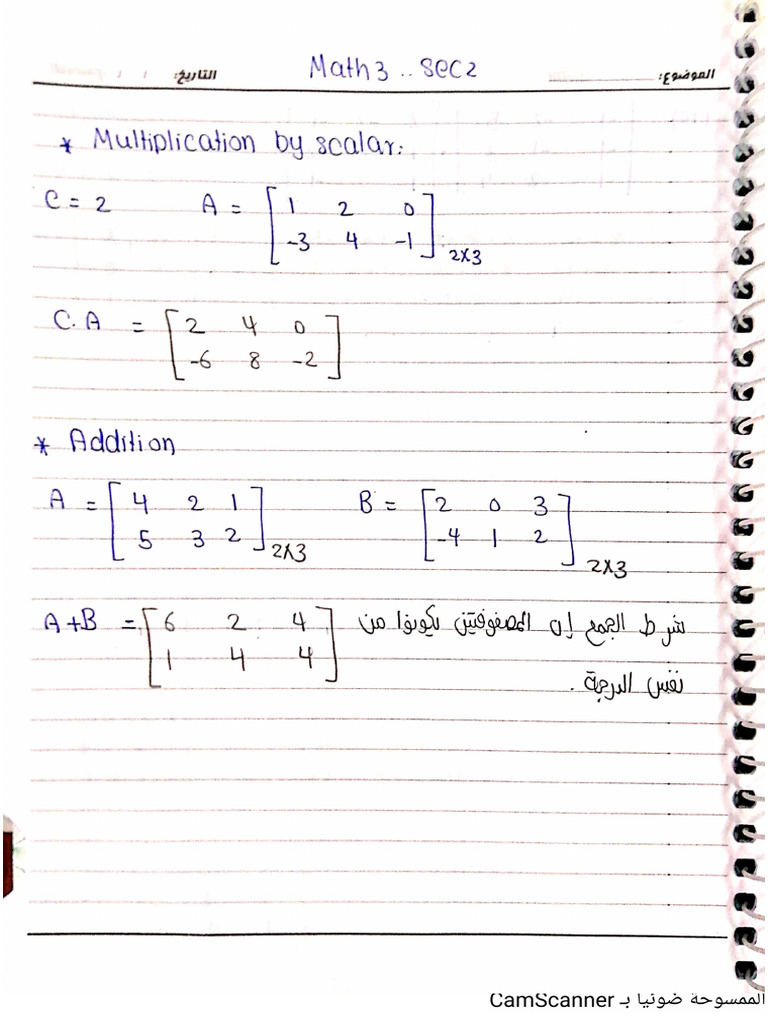 الموضوع: Math 3 .. sec 2 التاريخ: / /
* Multiplication by scalar:
C = 2 A = [1 2 0
-3 4 -1] 2x3
C. A = [2 4 0
-6 8 -2]
* Addition
A = [4 2 1 B = [2 0 3
5 3 2] 2x3 -4 1 2] 2x3
A+B = [6 2 4 شرط الجمع إن المصفوفتين يكونوا من
1 4 4] نفس الدرجة .
الممسوحة ضوئيا بـ CamScanner